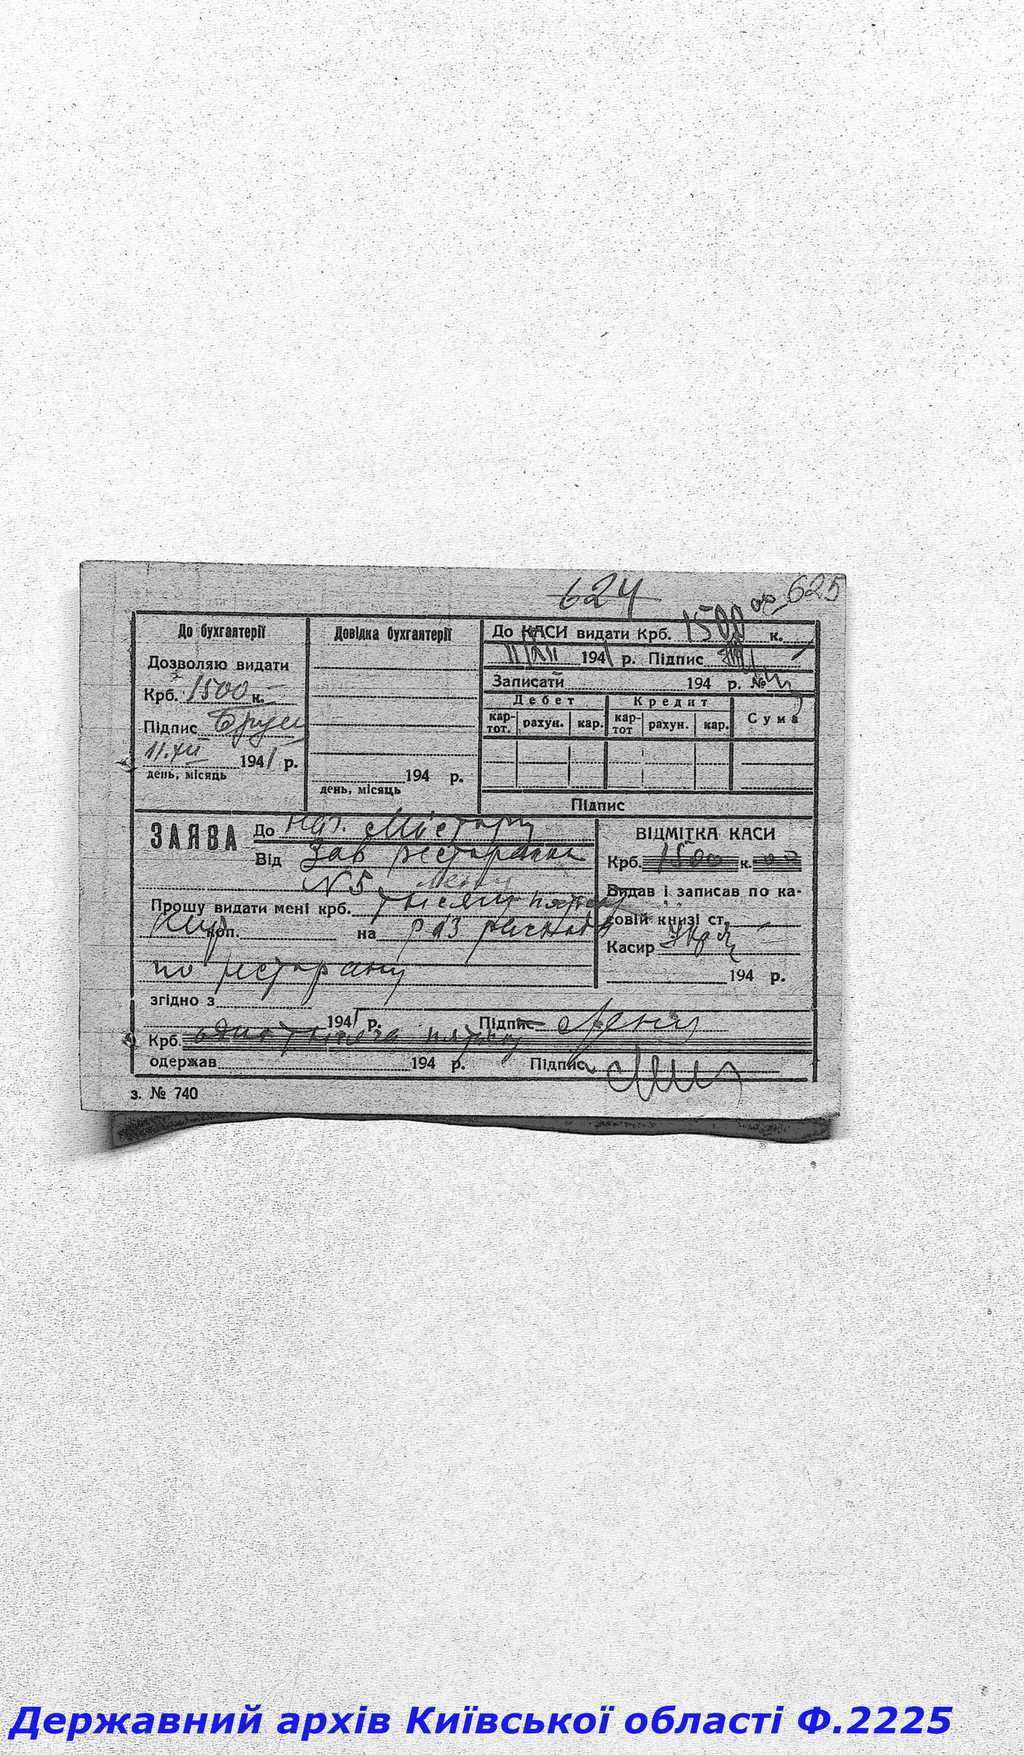 624
625
До бухгалтерії
Дозволяю видати
Крб. 1500 к.
Підпис
11.XII 1941 р.
день, місяць
Довідка бухгалтерії
194 р.
день, місяць
До КАСИ видати Крб. 1500 00 к.
11/XII 1941 р. Підпис
Записати 194 р. №
Дебет Кредит Сума
кар-тот. рахун. кар. кар-тот рахун. кар.
Підпис
ЗАЯВА До
Від Зав ресторана
N 5
Прошу видати мені крб. тисячу пятсот
коп. на раз расходы
по ресторану
згідно з
1941 р. Підпис
Крб. одна тысяча пятсот
одержав 194 р. Підпис
ВІДМІТКА КАСИ
Крб. 1500 к. 00
Видав і записав по ка-
совій книзі ст.
Касир
194 р.
з. № 740
Державний архів Київської області Ф.2225